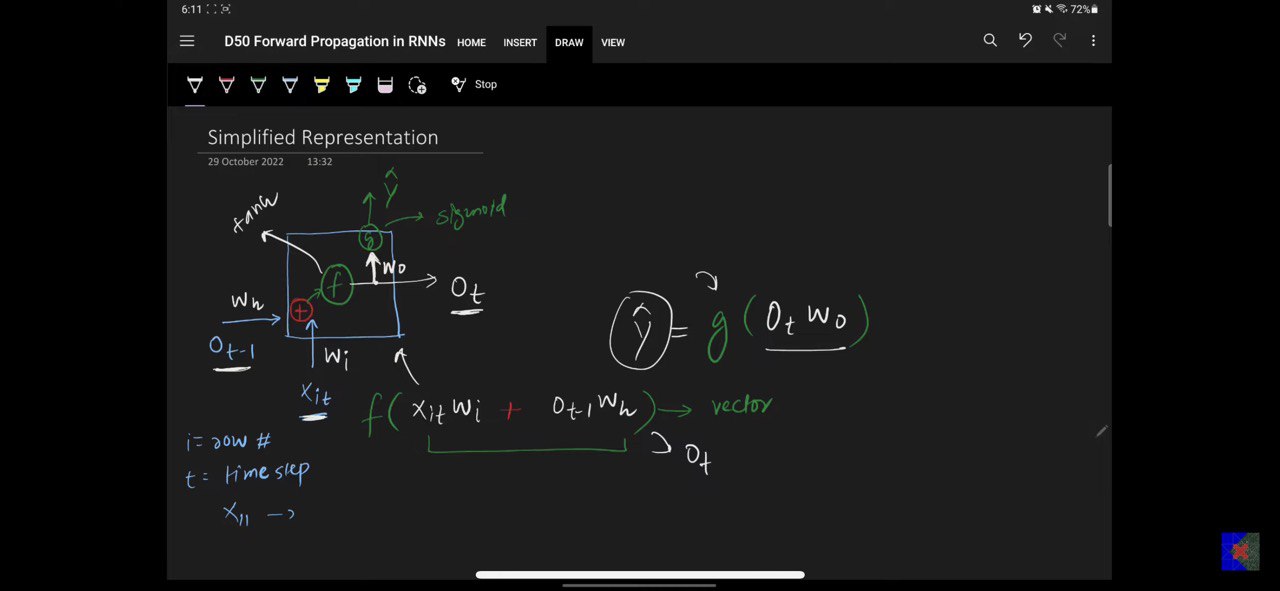 6:11
72%
D50 Forward Propagation in RNNs HOME INSERT DRAW VIEW
Stop
Simplified Representation
29 October 2022 13:32
ŷ
sigmoid
tanh
g
Wo
f
Ot
Wh
+
Ot-1
Wi
xit
ŷ = g (Ot Wo)
f( xit Wi + Ot-1 Wh ) → vector
Ot
i = row #
t = time step
x11 →